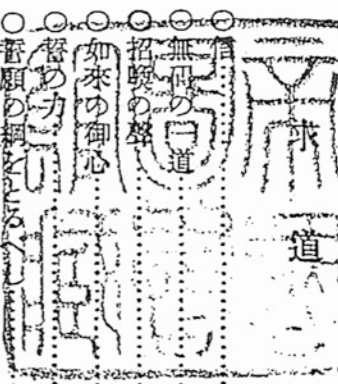 求道
○信…………
○無碍の一道…………
○招喚の聲…………
○如來の御心…………
○誓の力…………
○誓願の綱をとるべし…………